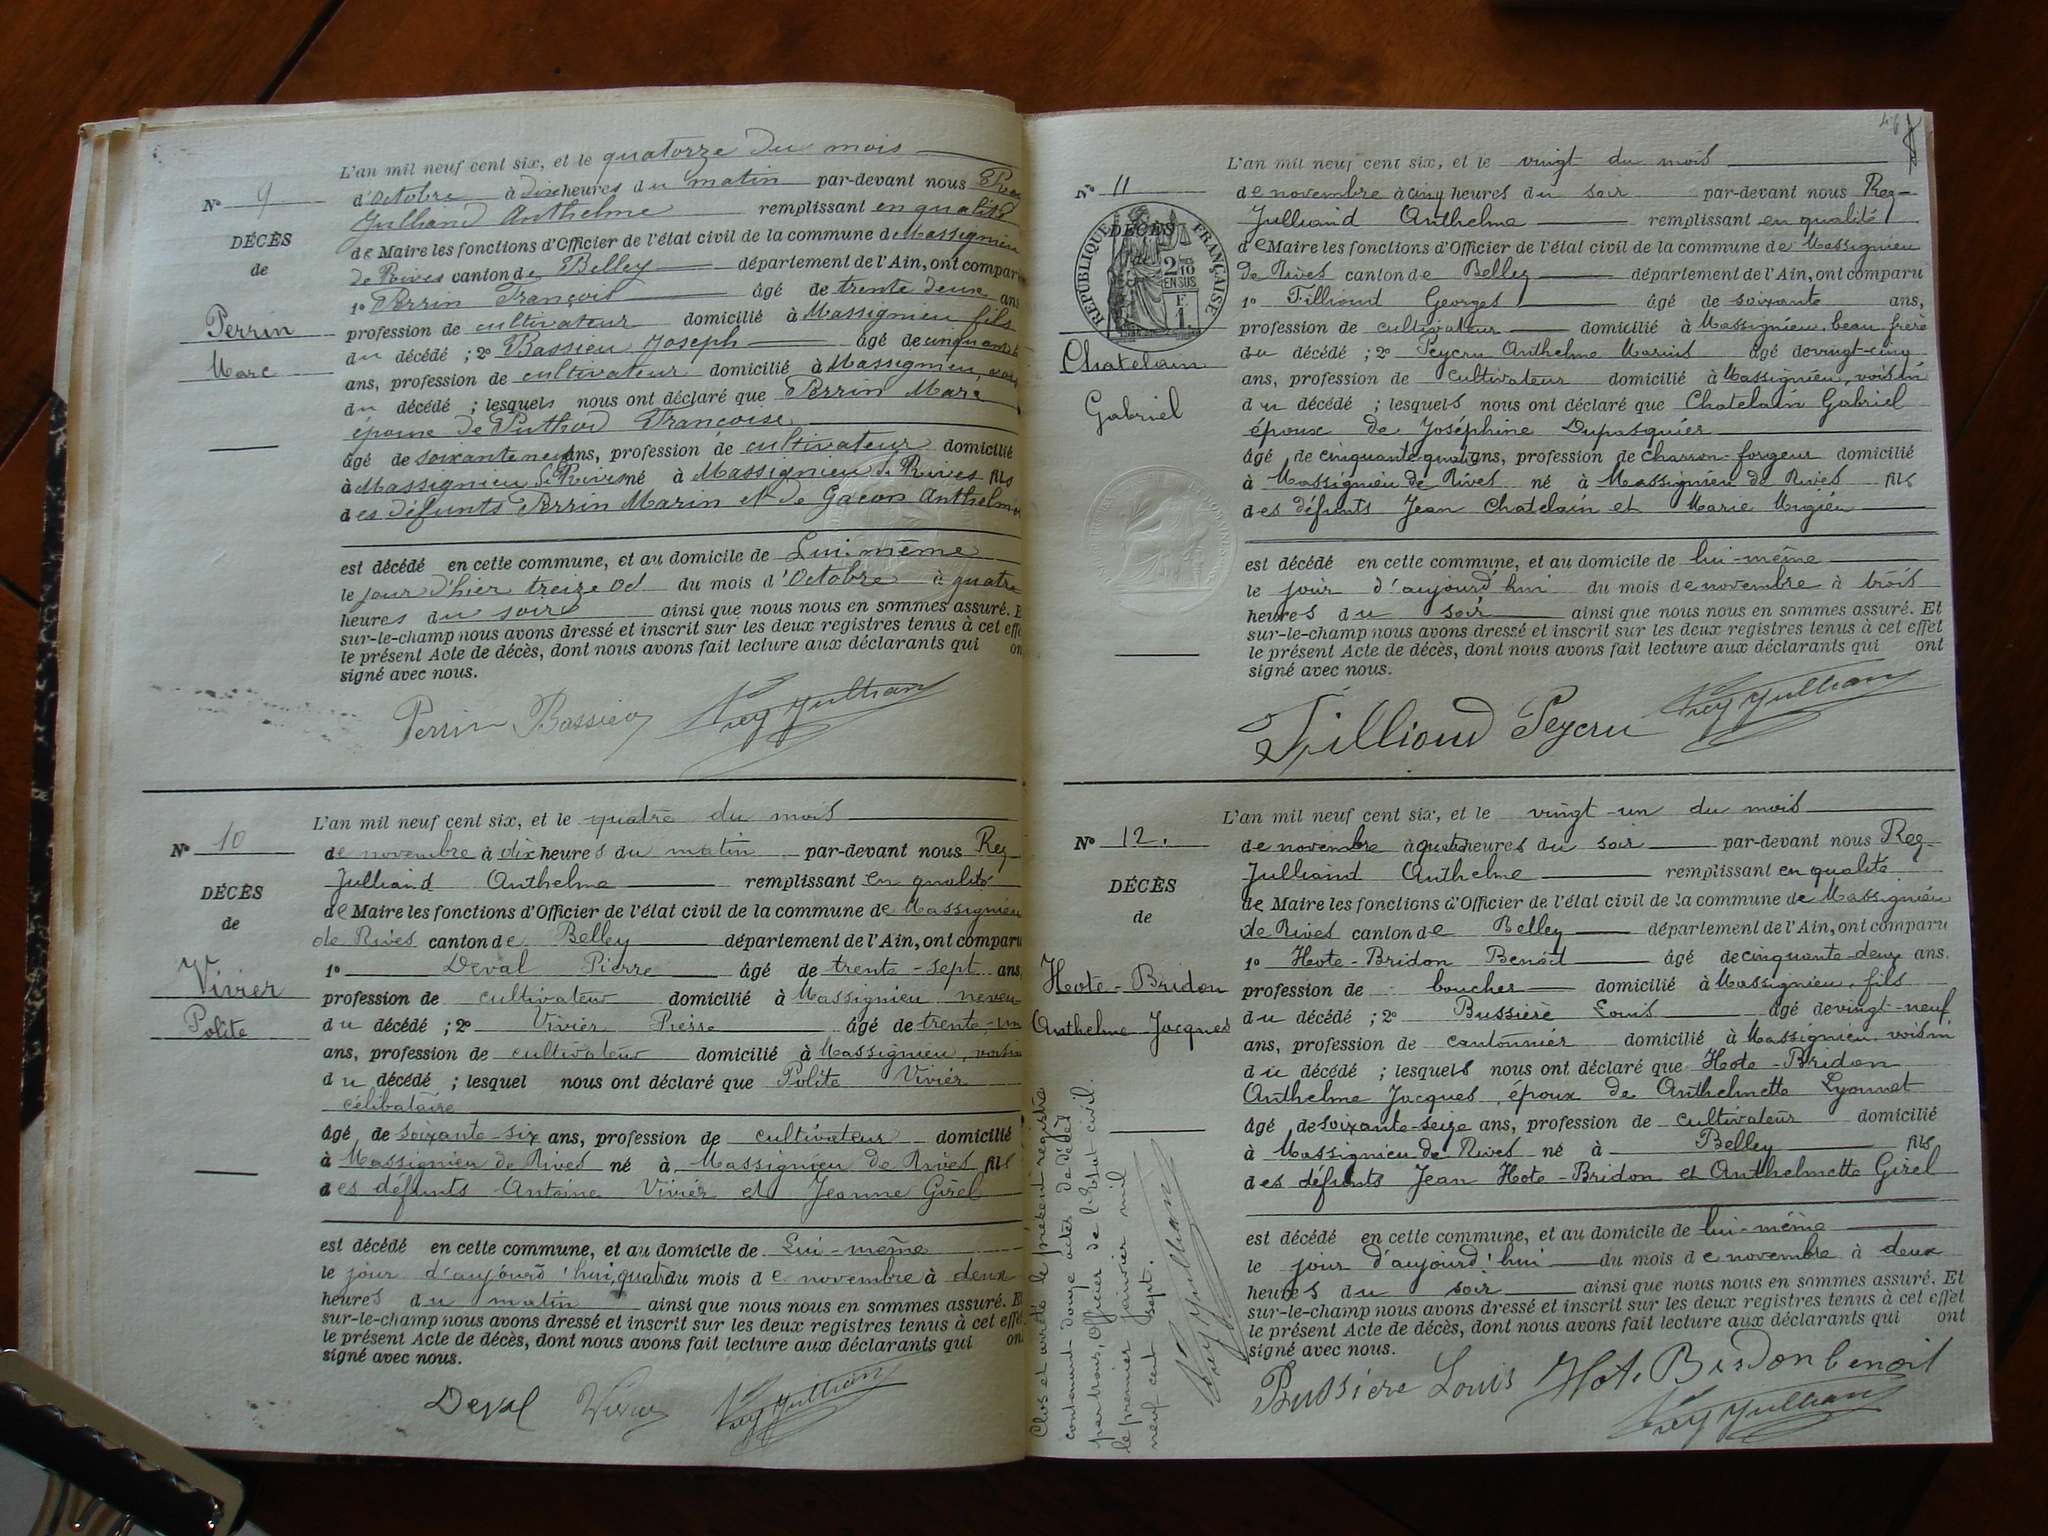 L'an mil neuf cent six, et le quatorze du mois
N° 9
d'Octobre à dix heures du matin par-devant nous Rey
Julliand Anthelme remplissant en qualité
DÉCÈS
de Maire les fonctions d'Officier de l'état civil de la commune de Massignieu
de
de Rives canton de Belley département de l'Ain, ont comparu
1° Perrin François âgé de trente deux ans
Perrin
profession de cultivateur domicilié à Massignieu fils
du décédé ; 2° Bassieu Joseph âgé de cinquante
Marc
ans, profession de cultivateur domicilié à Massignieu,
du décédé ; lesquels nous ont déclaré que Perrin Marc
époux de Puthod Françoise
âgé de soixante neuf ans, profession de cultivateur domicilié
à Massignieu de Rives né à Massignieu de Rives fils
des défunts Perrin Marin et de Gacon Anthelme
est décédé en cette commune, et au domicile de Lui-même
le jour d'hier treize Oct du mois d'Octobre à quatre
heures du soir ainsi que nous nous en sommes assuré. E
sur-le-champ nous avons dressé et inscrit sur les deux registres tenus à cet effe
le présent Acte de décès, dont nous avons fait lecture aux déclarants qui on
signé avec nous.
Perrin Bassieu Rey Jullian
L'an mil neuf cent six, et le quatre du mois
N° 10
de novembre à dix heures du matin par-devant nous Rey-
Julliand Anthelme remplissant en qualité
DÉCÈS
de Maire les fonctions d'Officier de l'état civil de la commune de Massignieu
de
de Rives canton de Belley département de l'Ain, ont comparu
Vivier
1° Deval Pierre âgé de trente-sept ans
profession de cultivateur domicilié à Massignieu neveu
Polite
du décédé ; 2° Vivier Pierre âgé de trente-un
ans, profession de cultivateur domicilié à Massignieu, voisin
du décédé ; lesquel nous ont déclaré que Polite Vivier
célibataire
âgé de soixante-six ans, profession de cultivateur domicilié
à Massignieu de Rives né à Massignieu de Rives fils
des défunts Antoine Vivier et Jeanne Girel
est décédé en cette commune, et au domicile de Lui-même
le jour d'aujourd'hui, quatre du mois de novembre à deux
heures du matin ainsi que nous nous en sommes assuré. E
sur-le-champ nous avons dressé et inscrit sur les deux registres tenus à cet effe
le présent Acte de décès, dont nous avons fait lecture aux déclarants qui on
signé avec nous.
Deval Vivier Rey Jullian
L'an mil neuf cent six, et le vingt du mois
N° 11
de novembre à cinq heures du soir par-devant nous Rey-
Julliand Anthelme remplissant en qualité
RÉPUBLIQUE FRANÇAISE
DÉCÈS
de
2/10 EN SUS
F. 1
de Maire les fonctions d'Officier de l'état civil de la commune de Massignieu
de Rives canton de Belley département de l'Ain, ont comparu
1° Filliond Georges âgé de soixante ans,
profession de cultivateur domicilié à Massignieu, beau frère
Chatelain
du décédé ; 2° Peycru Anthelme Marius âgé de vingt-cinq
ans, profession de cultivateur domicilié à Massignieu, voisin
Gabriel
du décédé ; lesquels nous ont déclaré que Chatelain Gabriel
époux de Joséphine Dupasquier
âgé de cinquante-quatre ans, profession de charron-forgeur domicilié
à Massignieu de Rives né à Massignieu de Rives fils
des défunts Jean Chatelain et Marie Mugieu
est décédé en cette commune, et au domicile de lui-même
le jour d'aujourd'hui du mois de novembre à trois
heures du soir ainsi que nous nous en sommes assuré. Et
sur-le-champ nous avons dressé et inscrit sur les deux registres tenus à cet effet
le présent Acte de décès, dont nous avons fait lecture aux déclarants qui ont
signé avec nous.
Filliond Peycru Rey Jullian
L'an mil neuf cent six, et le vingt-un du mois
N° 12.
de novembre à quatre heures du soir par-devant nous Rey-
Julliand Anthelme remplissant en qualité
DÉCÈS
de Maire les fonctions d'Officier de l'état civil de la commune de Massignieu
de
de Rives canton de Belley département de l'Ain, ont comparu
1° Hote-Bridon Benoit âgé de cinquante-deux ans.
Hote-Bridon
profession de boucher domicilié à Massignieu, fils
Anthelme Jacques
du décédé ; 2° Bussière Louis âgé de vingt-neuf
ans, profession de cantonnier domicilié à Massignieu, voisin
du décédé ; lesquels nous ont déclaré que Hote-Bridon
Anthelme Jacques, époux de Anthelmette Lyonnet
âgé de soixante-seize ans, profession de cultivateur domicilié
à Massignieu de Rives né à Belley fils
des défunts Jean Hote-Bridon et Anthelmette Girel
est décédé en cette commune, et au domicile de lui-même
le jour d'aujourd'hui du mois de novembre à deux
heures du soir ainsi que nous nous en sommes assuré. Et
sur-le-champ nous avons dressé et inscrit sur les deux registres tenus à cet effet
le présent Acte de décès, dont nous avons fait lecture aux déclarants qui ont
signé avec nous.
Bussiere Louis Hote Bridon benoit
Rey Jullian
Clos et arrêté le présent registre
contenant douze actes de décès
par nous, Officier de l'État-civil.
le premier Janvier mil
neuf cent sept.
Rey Jullian